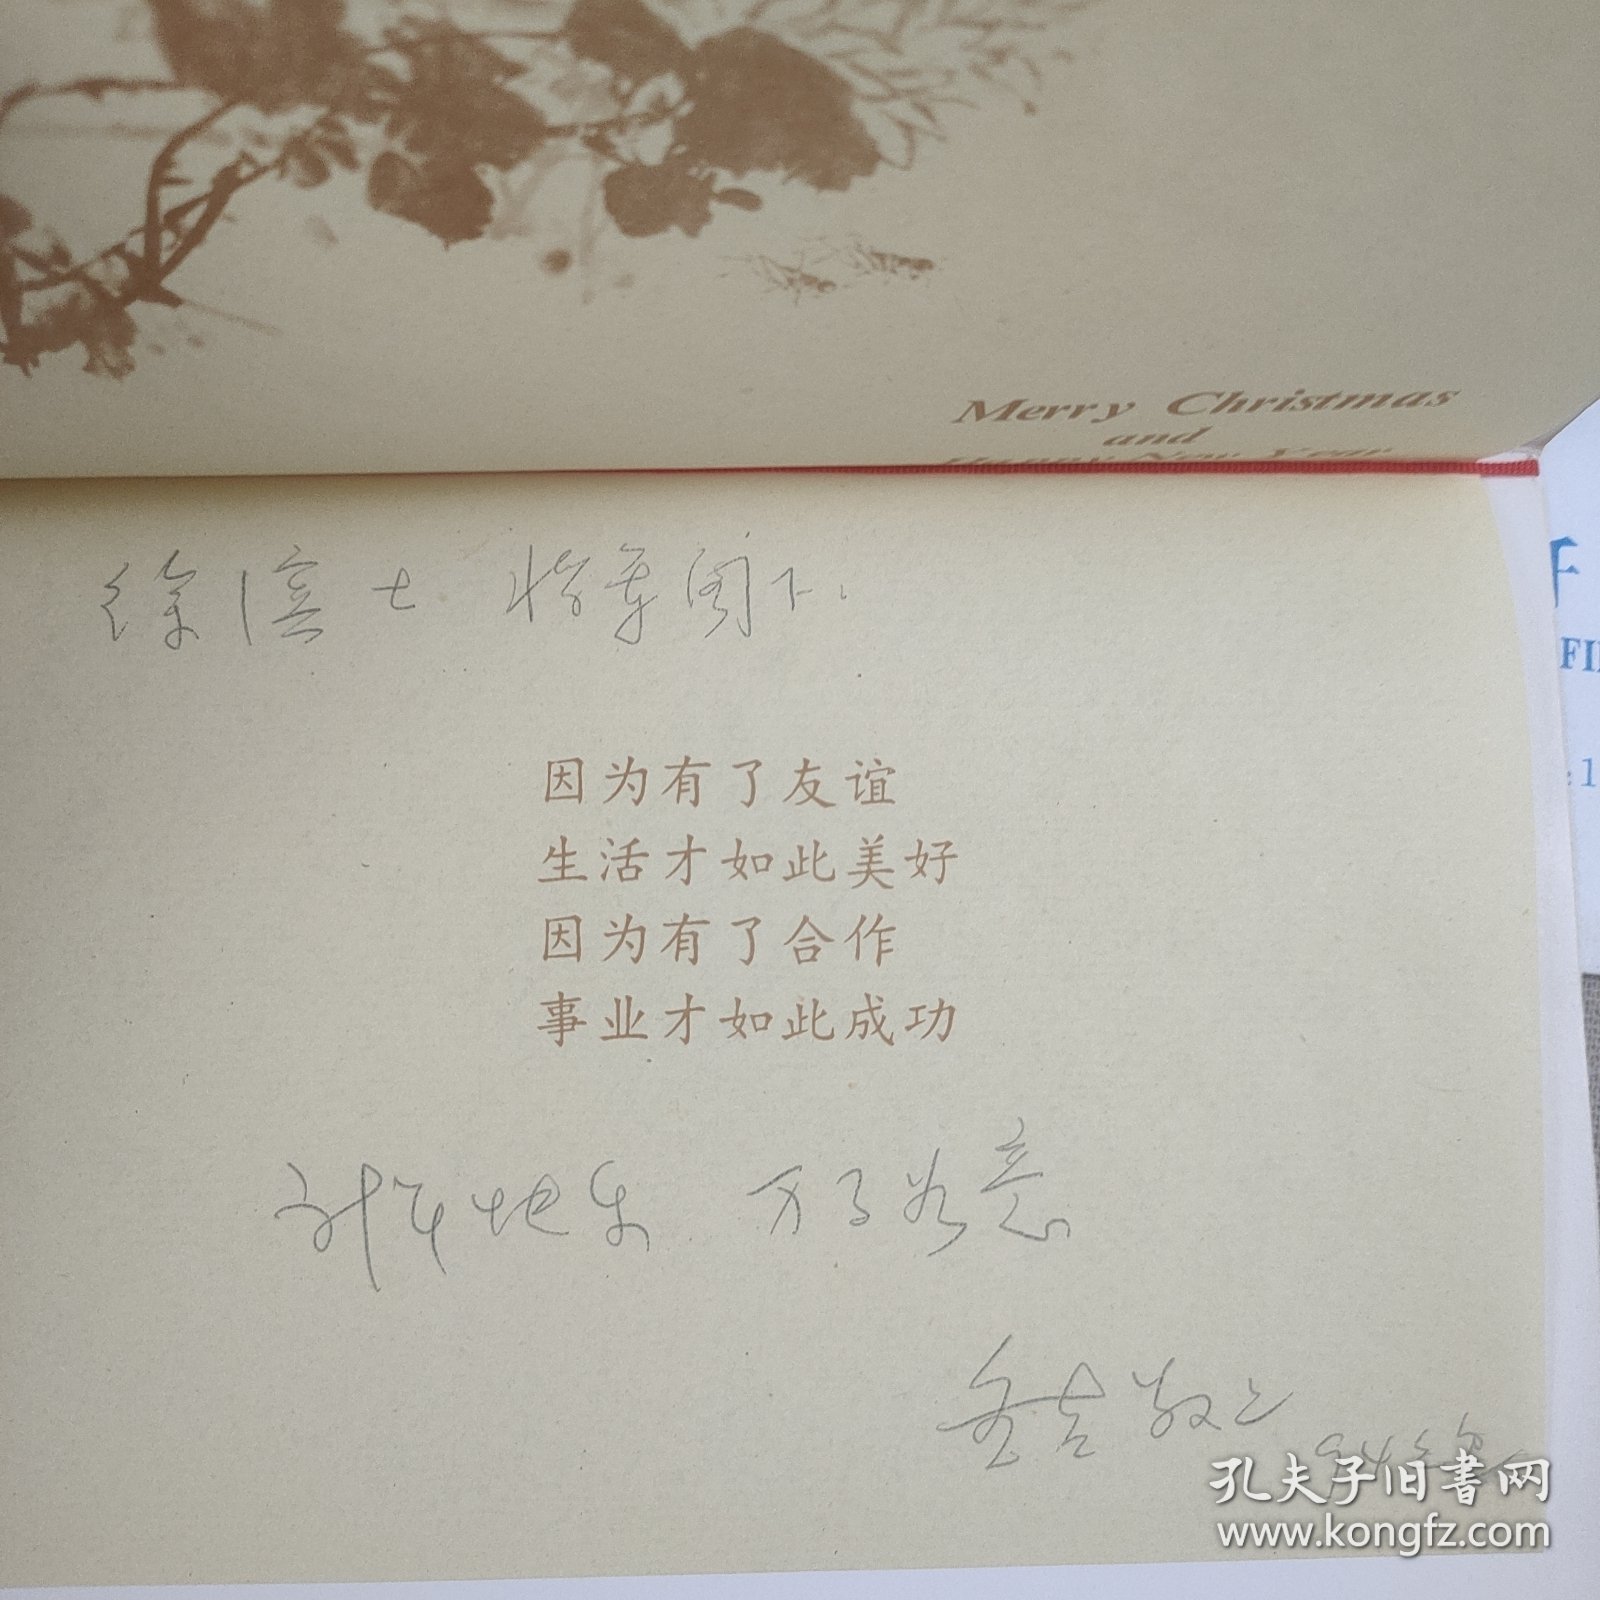 Merry Christmas
and
Happy New Year
徐 士 将军阁下:
因为有了友谊
生活才如此美好
因为有了合作
事业才如此成功
新年快乐 万事如意
敬上
孔夫子旧书网
www.kongfz.com
FI
1